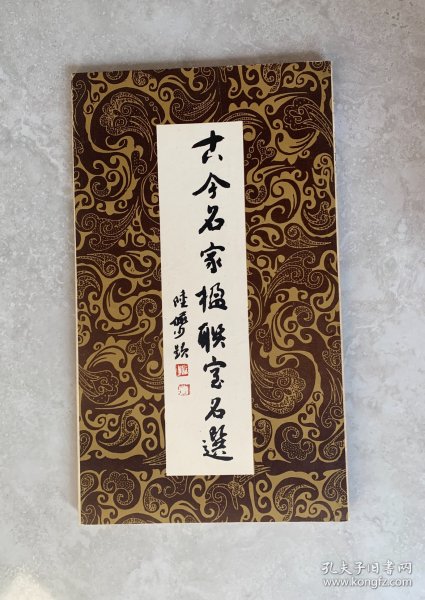 古今名家楹联室名選
陸儼少題
孔夫子旧书网
www.kongfz.com